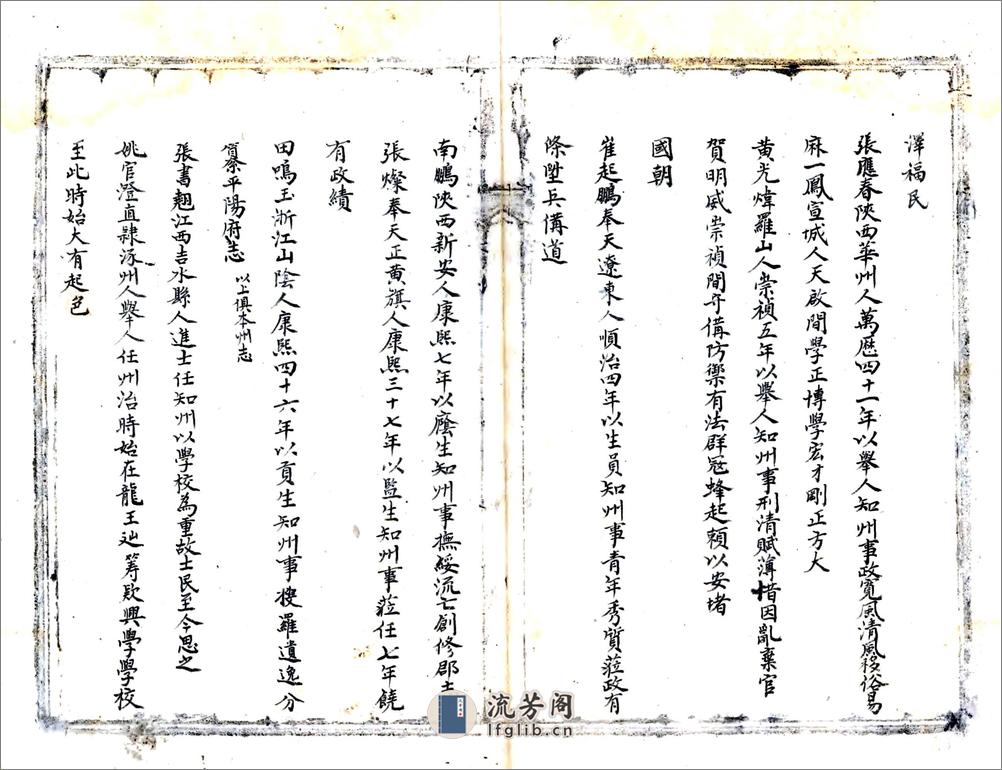 澤福民
張應春陝西華州人萬曆四十一年以舉人知州事政寬風清風移俗易
麻一鳳宣城人天啟間學正博學宏才剛正方大
黃光煒羅山人崇禎五年以舉人知州事刑清賦薄惜因亂棄官
賀明威崇禎間守備防禦有法群冦蜂起頼以安堵
國朝
崔起鵬奉天遼東人順治四年以生員知州事青年秀質蒞政有
條陞兵備道
南鵬陝西新安人康熙七年以廕生知州事撫綏流亡創修郡
張燦奉天正黄旗人康熙三十七年以監生知州事蒞任七年饒
有政績
田鳴玉浙江山陰人康熙四十六年以貢生知州事搜羅遺逸分
纂平陽府志 以上俱本州志
張書翹江西吉水縣人進士任知州以學校為重故士民至今思之
姚官澄直隸涿州人舉人任州治時始在龍王辿籌欵興學學校
至此時始大有起色
流芳阁
lfglib.cn